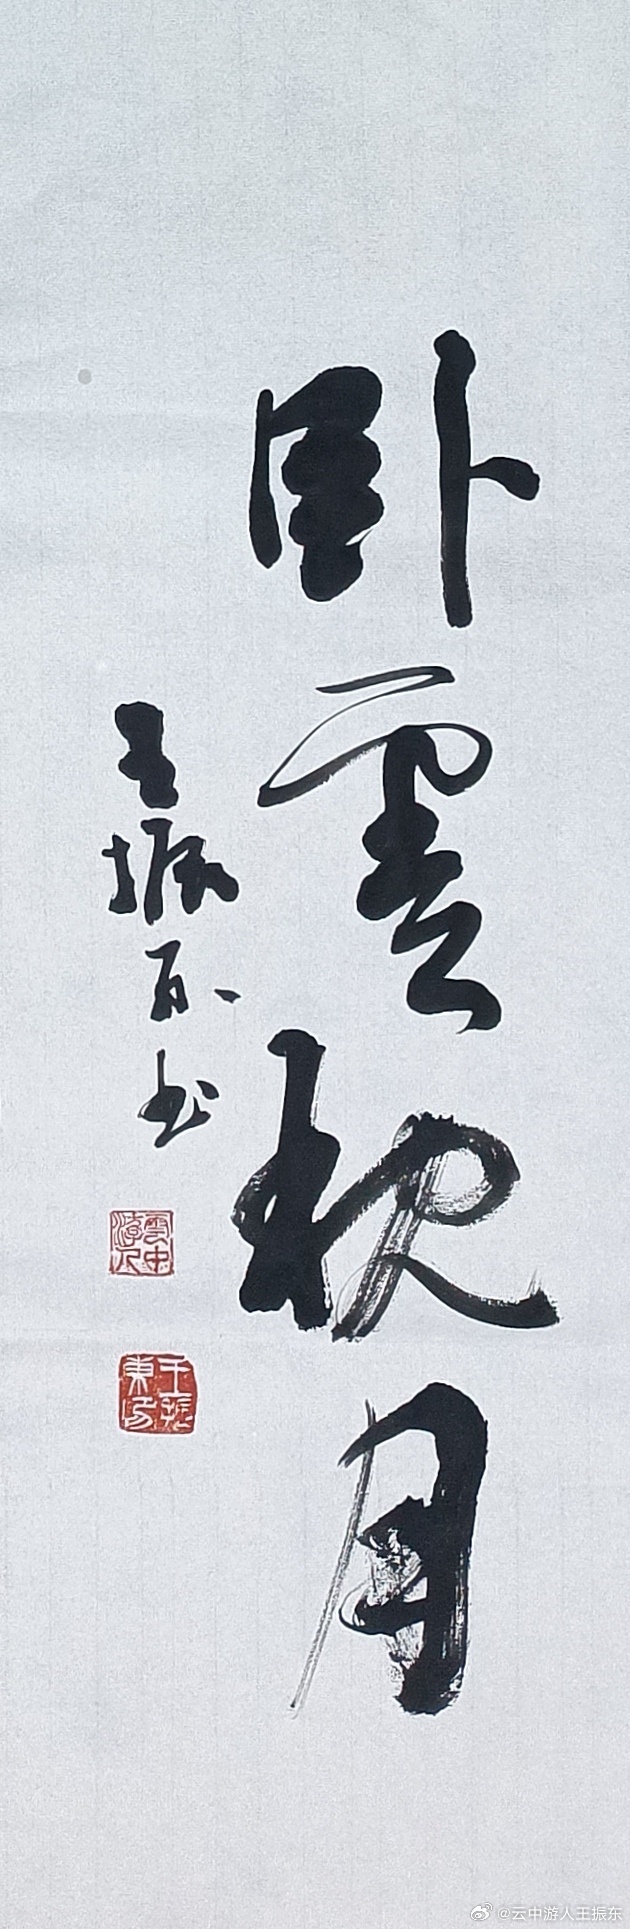 卧雲枕月
王振东书
雲中游人
王振東印
@云中游人王振东